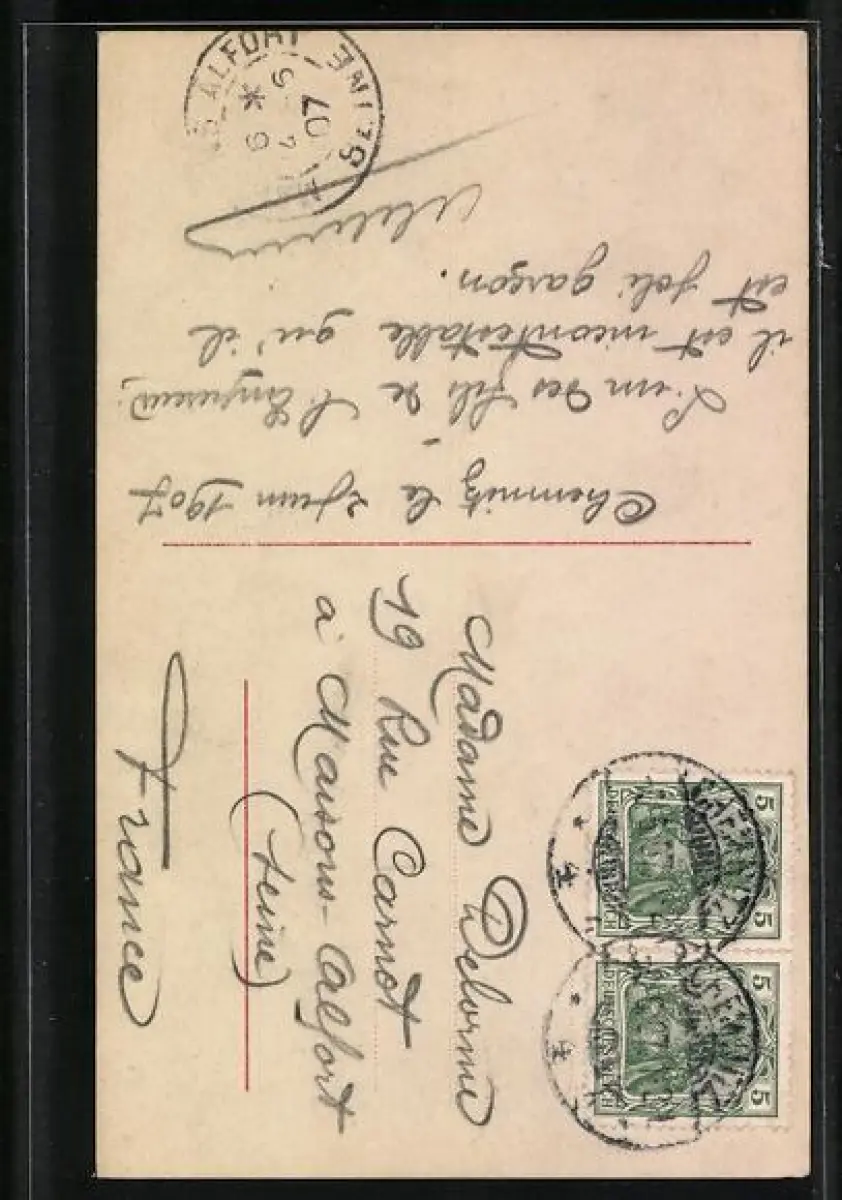 Chemnitz le 7 juin 1907
L'un des fils de l'Empereur,
il est incontestable qu'il
est joli garçon.
Madame Delorme
19 Rue Carnot
à Maisons-Alfort
(Seine)
France
ALFORT
SEINE
07
5 5
DEUTSCHES REICH
CHEMNITZ
5 5
DEUTSCHES REICH
CHEMNITZ